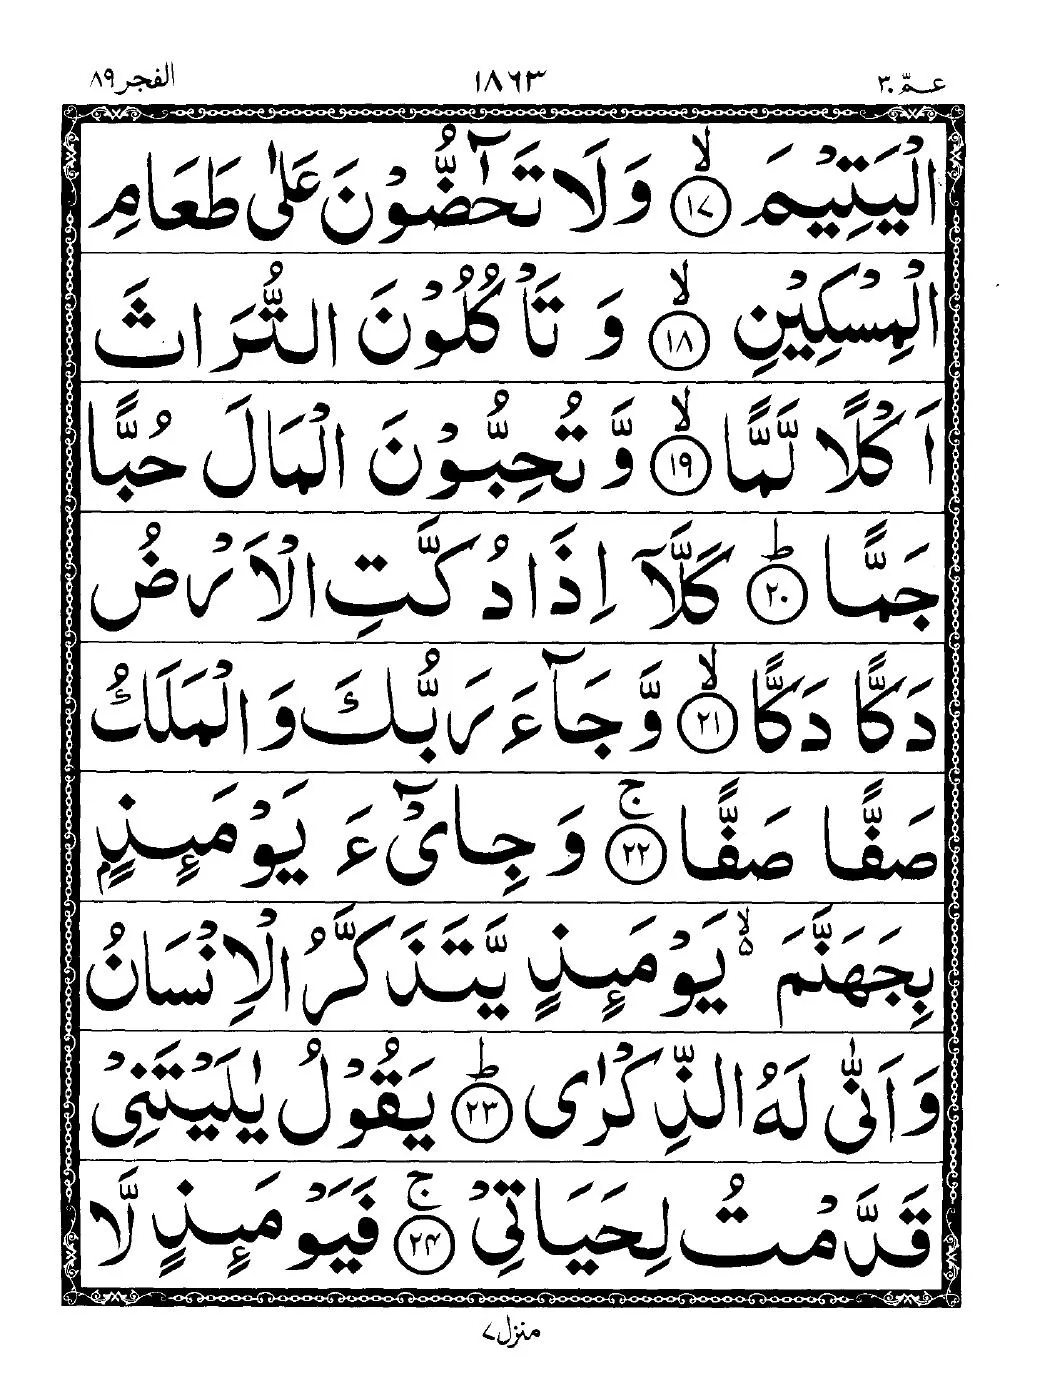 عـمّ ٣٠ ١٨٦٣ الفجر ٨٩
الْيَتِيْمَ ۙ﴿١٧﴾ وَلَا تَحٰٓضُّوْنَ عَلٰى طَعَامِ
الْمِسْكِيْنِ ۙ﴿١٨﴾ وَ تَاْكُلُوْنَ التُّرَاثَ
اَكْلًا لَّمًّا ۙ﴿١٩﴾ وَّ تُحِبُّوْنَ الْمَالَ حُبًّا
جَمًّا ؕ﴿٢٠﴾ كَلَّاۤ اِذَا دُكَّتِ الْاَرْضُ
دَكًّا دَكًّا ۙ﴿٢١﴾ وَّ جَآءَ رَبُّكَ وَ الْمَلَكُ
صَفًّا صَفًّا ۚ﴿٢٢﴾ وَ جِایْٓءَ يَوْمَئِذٍۭ
بِجَهَنَّمَ ۙ۬ يَوْمَئِذٍ يَّتَذَكَّرُ الْاِنْسَانُ
وَ اَنّٰى لَهُ الذِّكْرٰى ؕ﴿٢٣﴾ يَقُوْلُ يٰلَيْتَنِيْ
قَدَّمْتُ لِحَيَاتِيْ ۚ﴿٢٤﴾ فَيَوْمَئِذٍ لَّا
منزل ٧